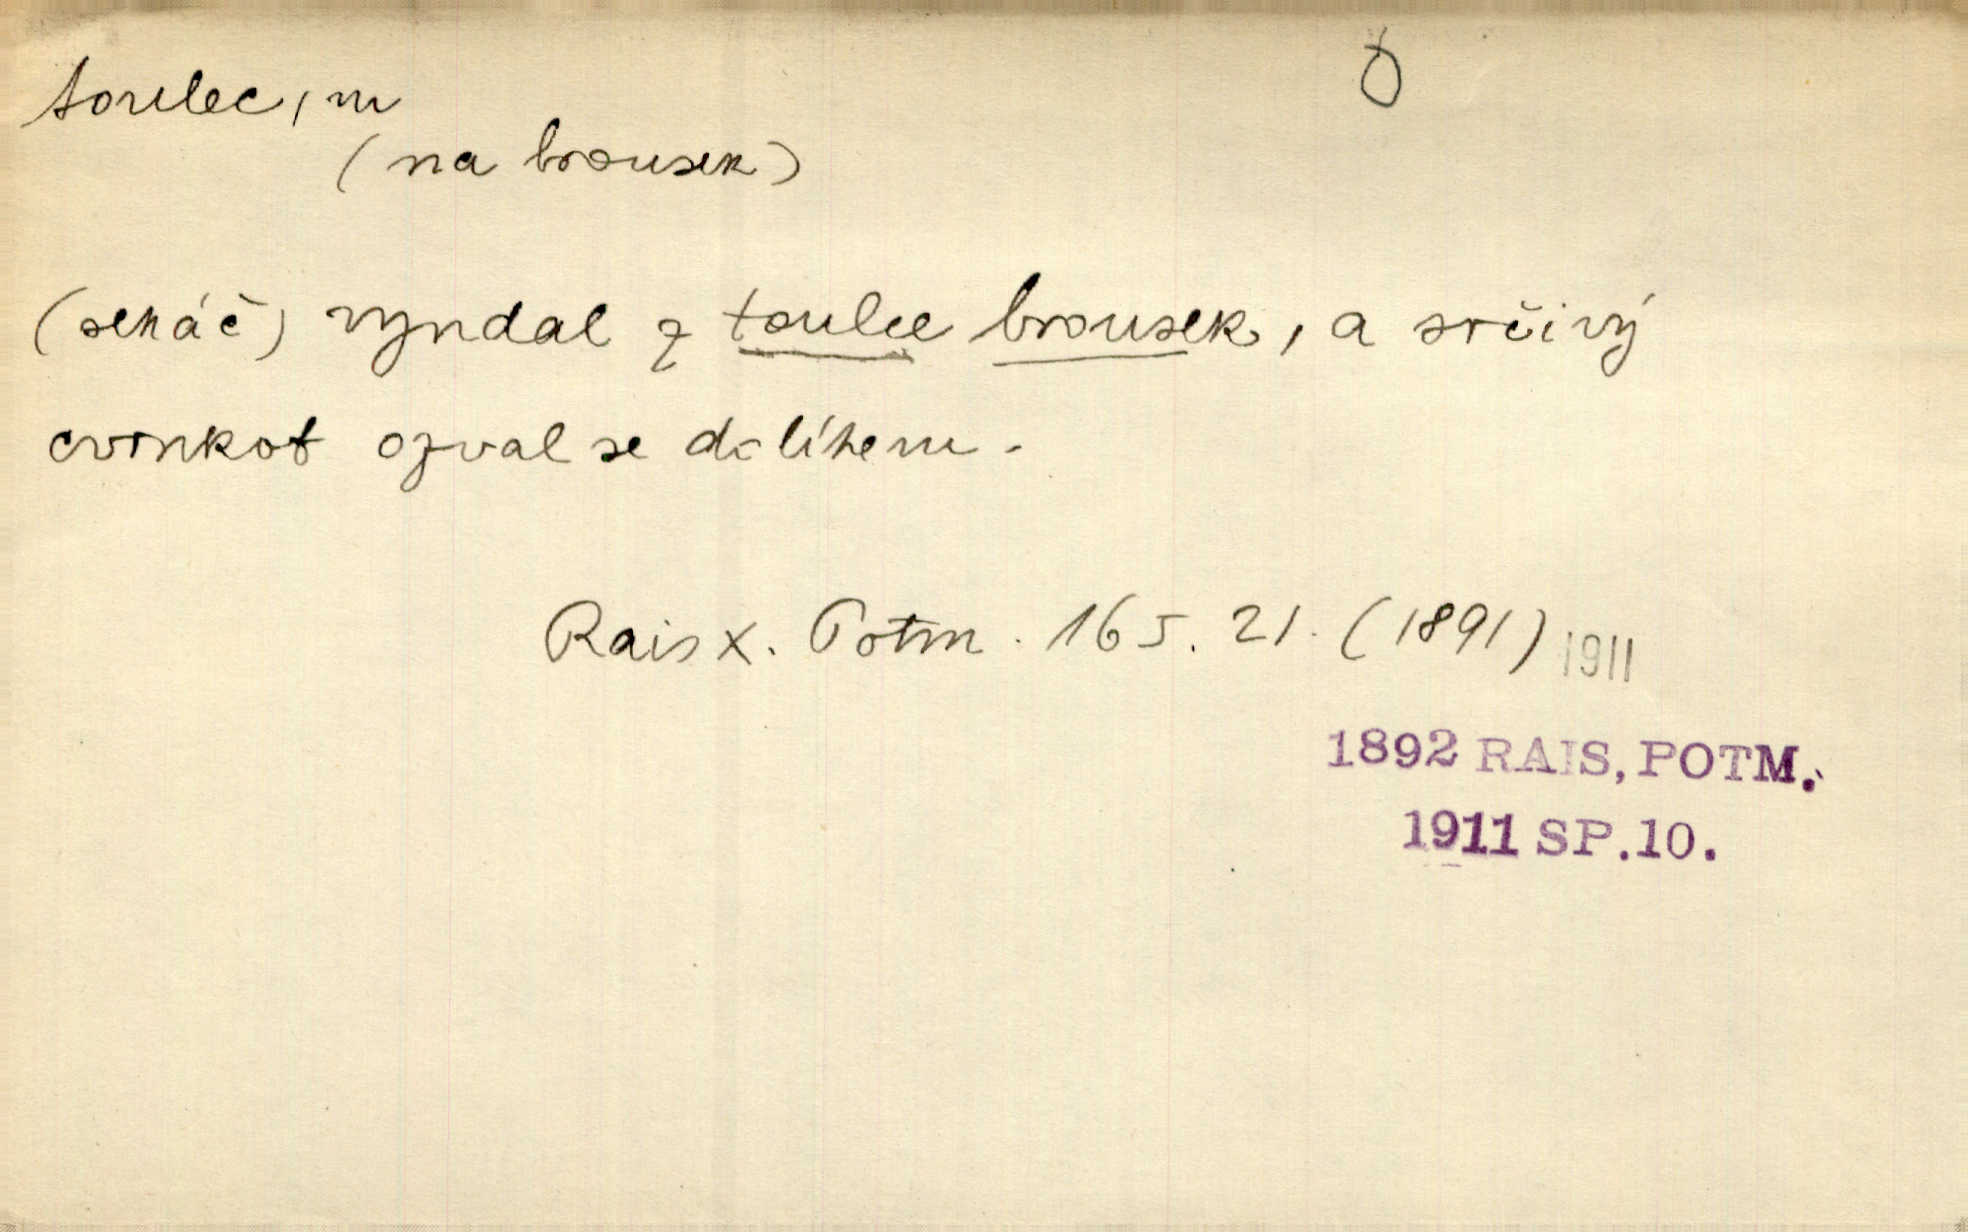 toulec, m
Ó
(na brousek)
(sekáč) vyndal z toulce brousek, a srčivý
cvrnkot ozval se dolíkem.
Rais X. Potm. 165. 21. (1891) 1911
1892 RAIS, POTM.
1911 SP.10.